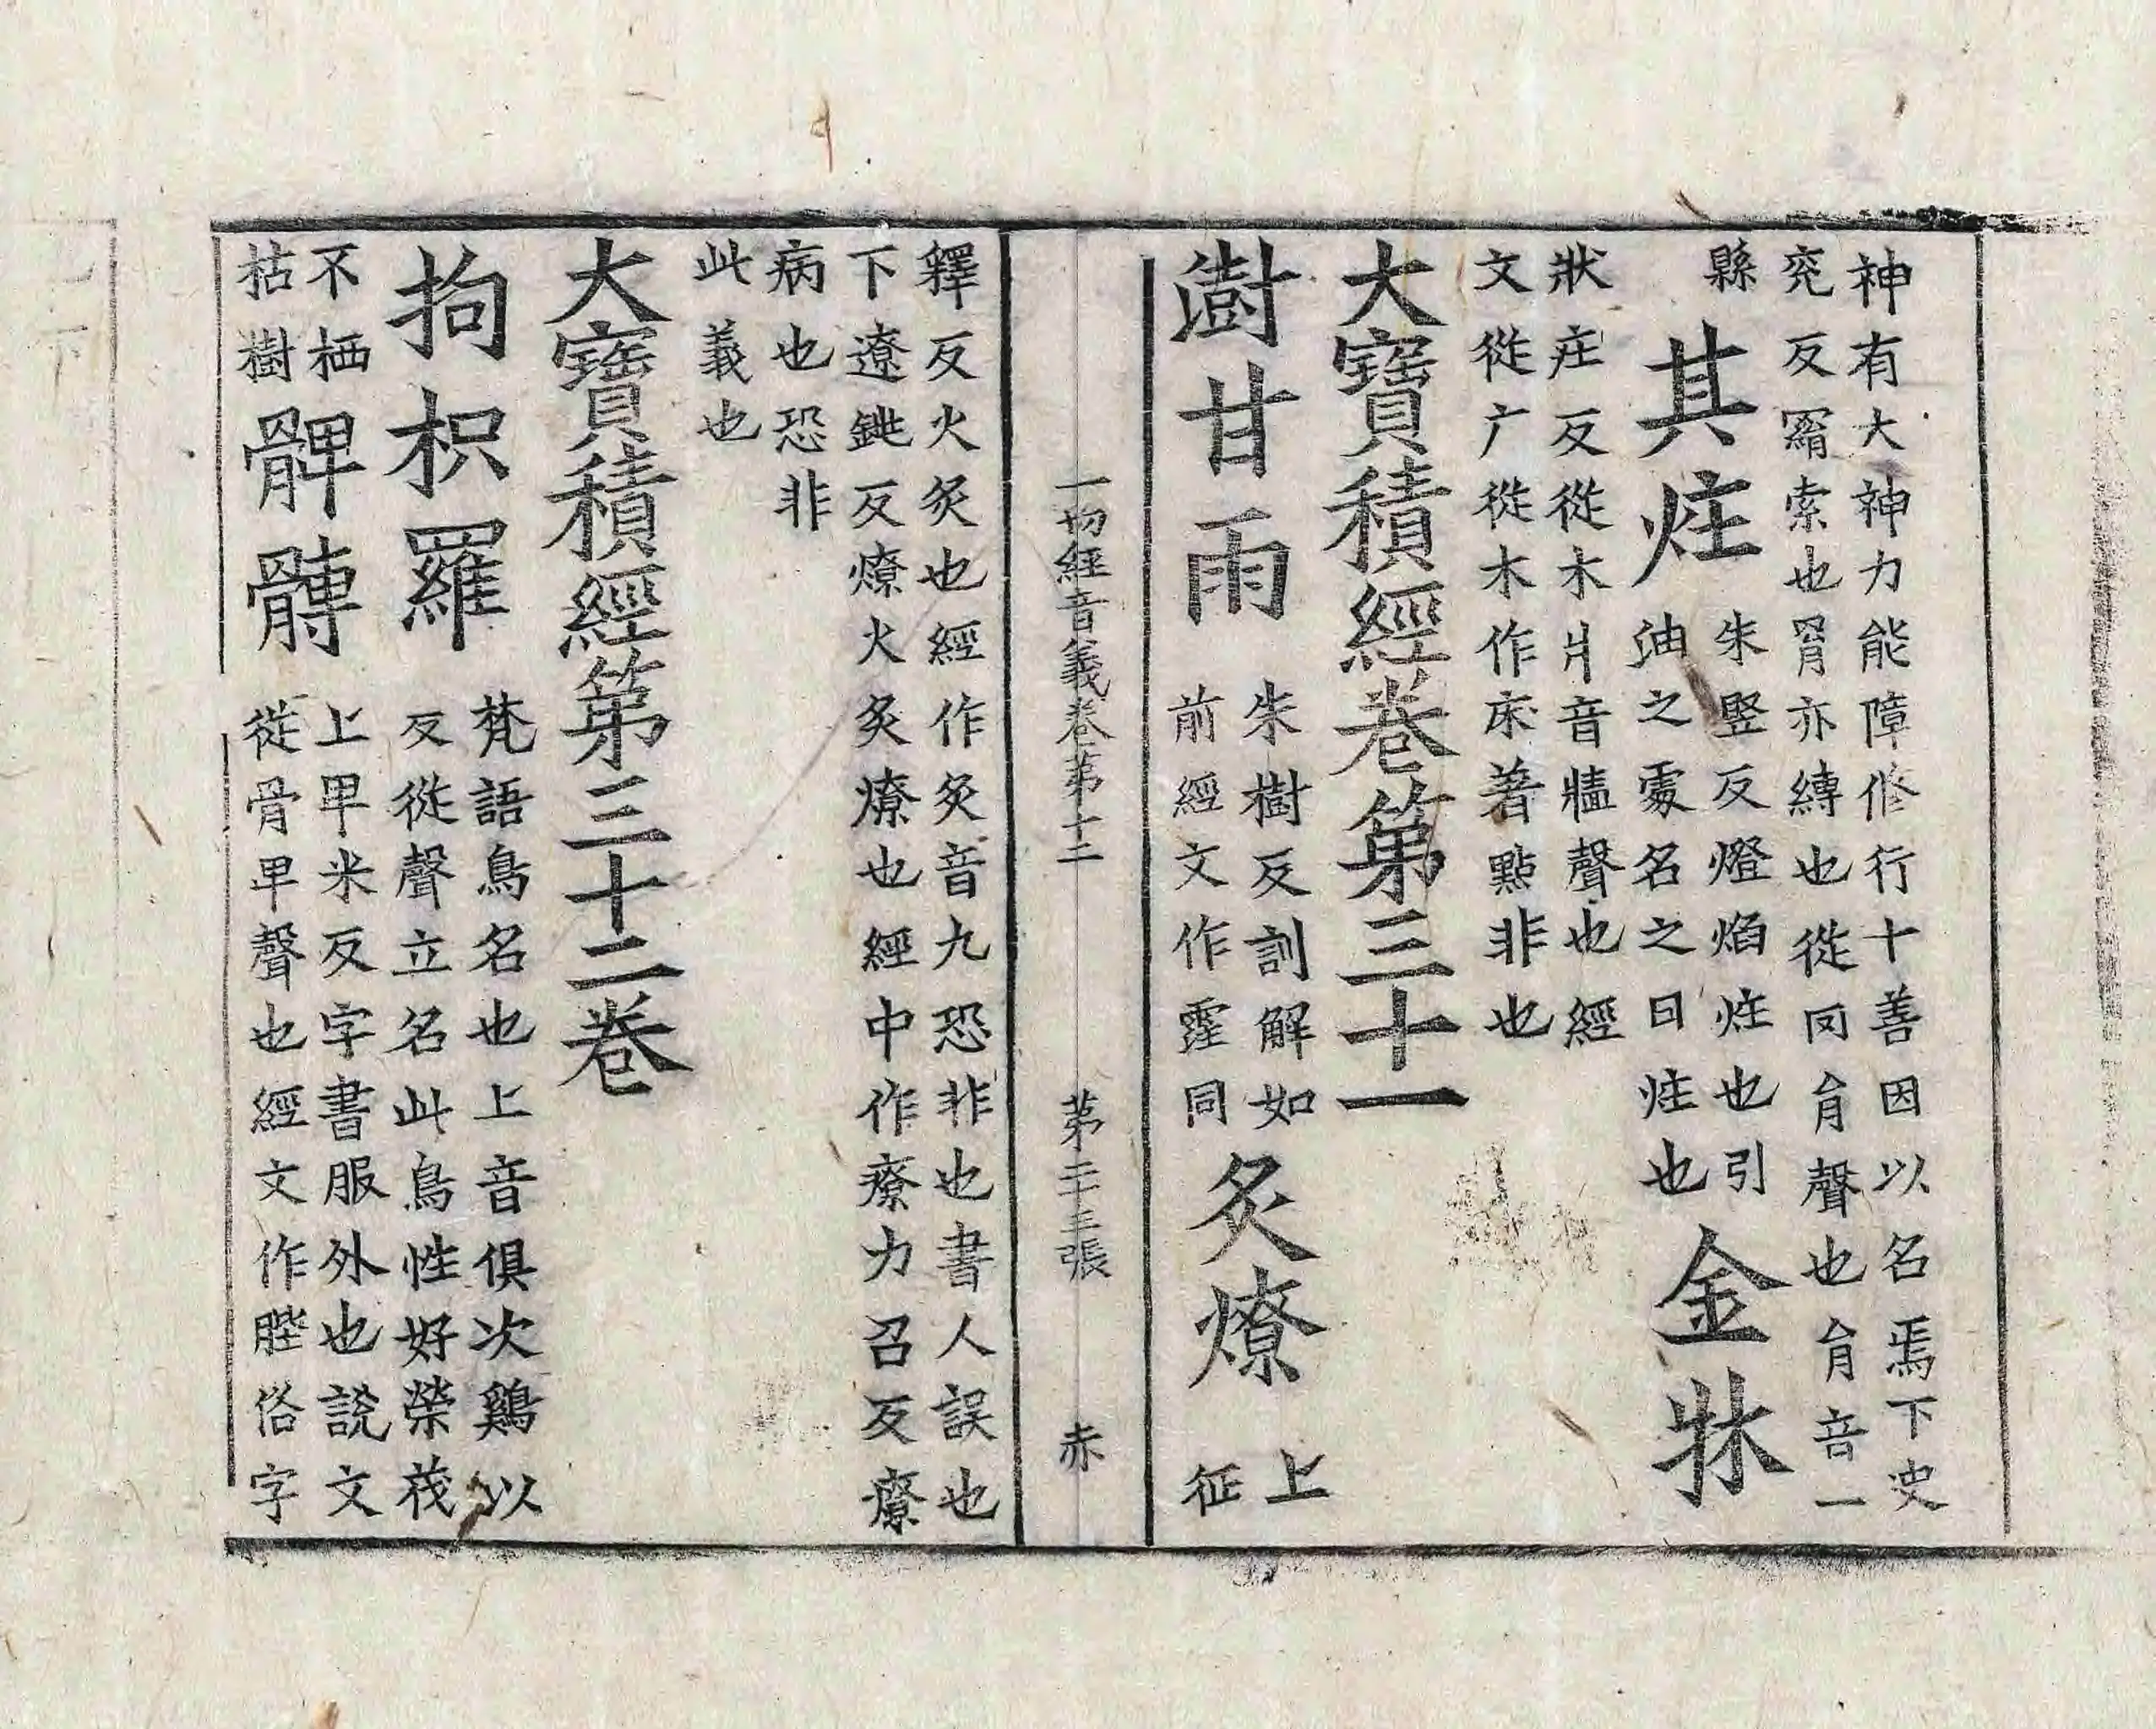 神有大神力能障修行十善因以名焉下史
兖反羂索也罥亦縛也從𦉪肙聲也肙音一
縣
其炷
朱竪反燈焰炷也引
油之處名之曰炷也
金牀
狀庄反從木爿音牆聲也經
文從广從木作床著點非也
大寶積經卷第三十一
澍甘雨
朱樹反訓解如
前經文作霔同
炙燎
上
征
一切經音義卷第十二 第二十三張 赤
釋反火炙也經作灸音九恐非也書人誤也
下遼銚反燎火炙燎也經中作療力召反療
病也恐非
此義也
大寶積經第三十二卷
拘枳羅
梵語鳥名也上音俱次鷄以
反從聲立名此鳥性好榮茂
不栖
枯樹
髀𩪛
上卑米反字書服外也說文
從骨卑聲也經文作䏶俗字